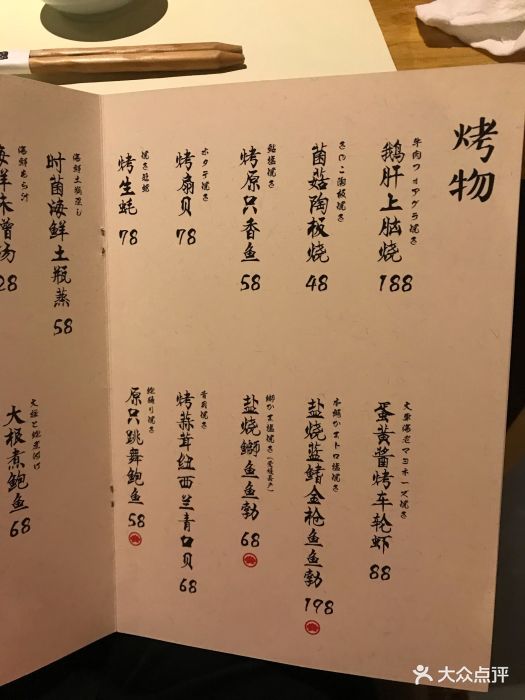 烤物
牛肉フォアグラ焼き
鵝肝上脑烧
188
きのこ陶板焼き
菌菇陶板烧
48
鮎塩焼き
烤原只香鱼
58
ホタテ焼き
烤扇贝
78
焼き牡蛎
烤生蚝
78
大車海老マヨネーズ焼き
蛋黄醬烤车轮虾
88
本鮪かまトロ塩焼き
盐烧蓝鳍金枪鱼鱼勃
198
鰤かま塩焼き
盐烧鰤鱼鱼勃
68
青貝焼き
烤蒜茸纽西兰青口贝
68
鮑踊り焼き
原只跳舞鲍鱼
58
海鮮土瓶蒸し
时菌海鲜土瓶蒸
58
海鲜味噌汤
28
大根と鮑煮付け
大根煮鲍鱼
68
大众点评